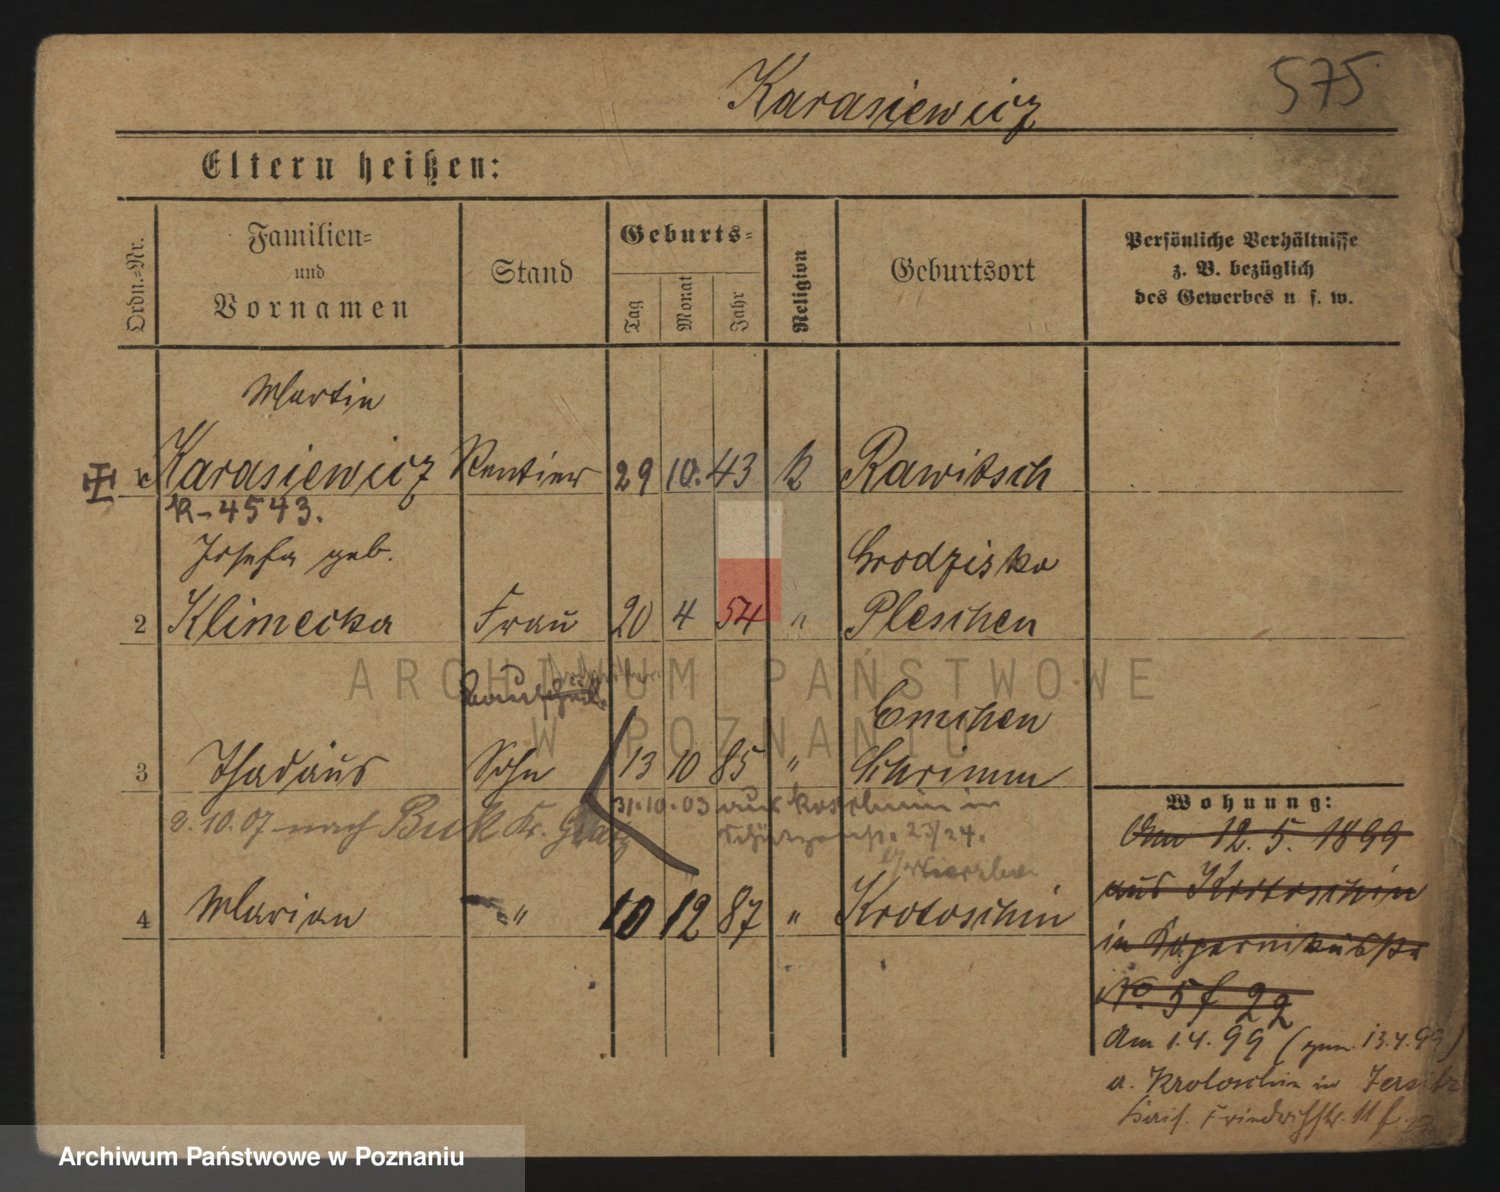 Karasiewicz
575
Eltern heißen:
Ordn.-Nr.
Familien-
und
Vornamen
Stand
Geburts-
Tag
Monat
Jahr
Religion
Geburtsort
Persönliche Verhältnisse
z. B. bezüglich
des Gewerbes u. s. w.
Martin
1 Karasiewicz Rentier 29 10. 43 k Rawitsch
K-4543.
Josefa geb. Grodzisko
2 Klimecka Frau 20 4 54 " Pleschen
Emchen
3 Thadäus Sohn 13 10 85 " Schrimm
31.10.03 aus Koschmin in
2.10.07 nach Buk Kr. Grätz
23/24.
4 Marian " 10 12 87 " Krotoschin
Wohnung:
Am 12. 5. 1899
aus Krotoschin
in Kopernikusstr
No. 5 f 22
Am 1.4.99 ( 13.4.99)
a. Krotoschin in Jersitz
Kais. Friedrichstr. 11 f
ARCHIWUM PAŃSTWOWE
W POZNANIU
Archiwum Państwowe w Poznaniu